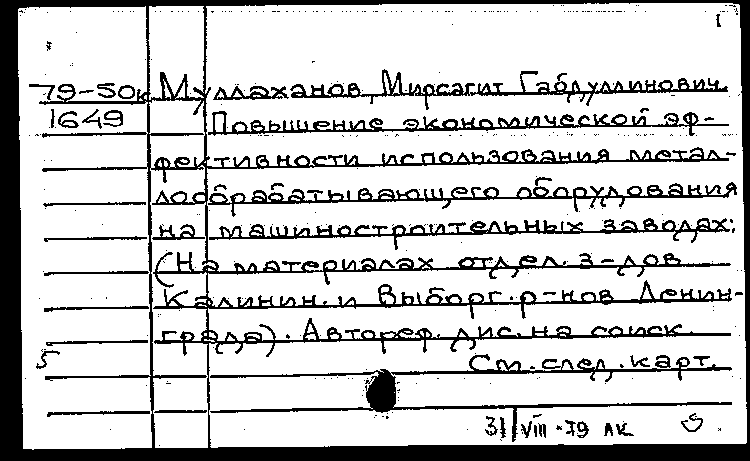 1
79-50к Муллаханов, Мирсагит Габдуллинович.
1649 Повышение экономической эф-
фективности использования метал-
лообрабатывающего оборудования
на машиностроительных заводах:
(На материалах отдел. з-дов
Калинин. и Выборг. р-нов Ленин-
града). Автореф. дис. на соиск.
5 См. след. карт.
31/VIII-79 лк